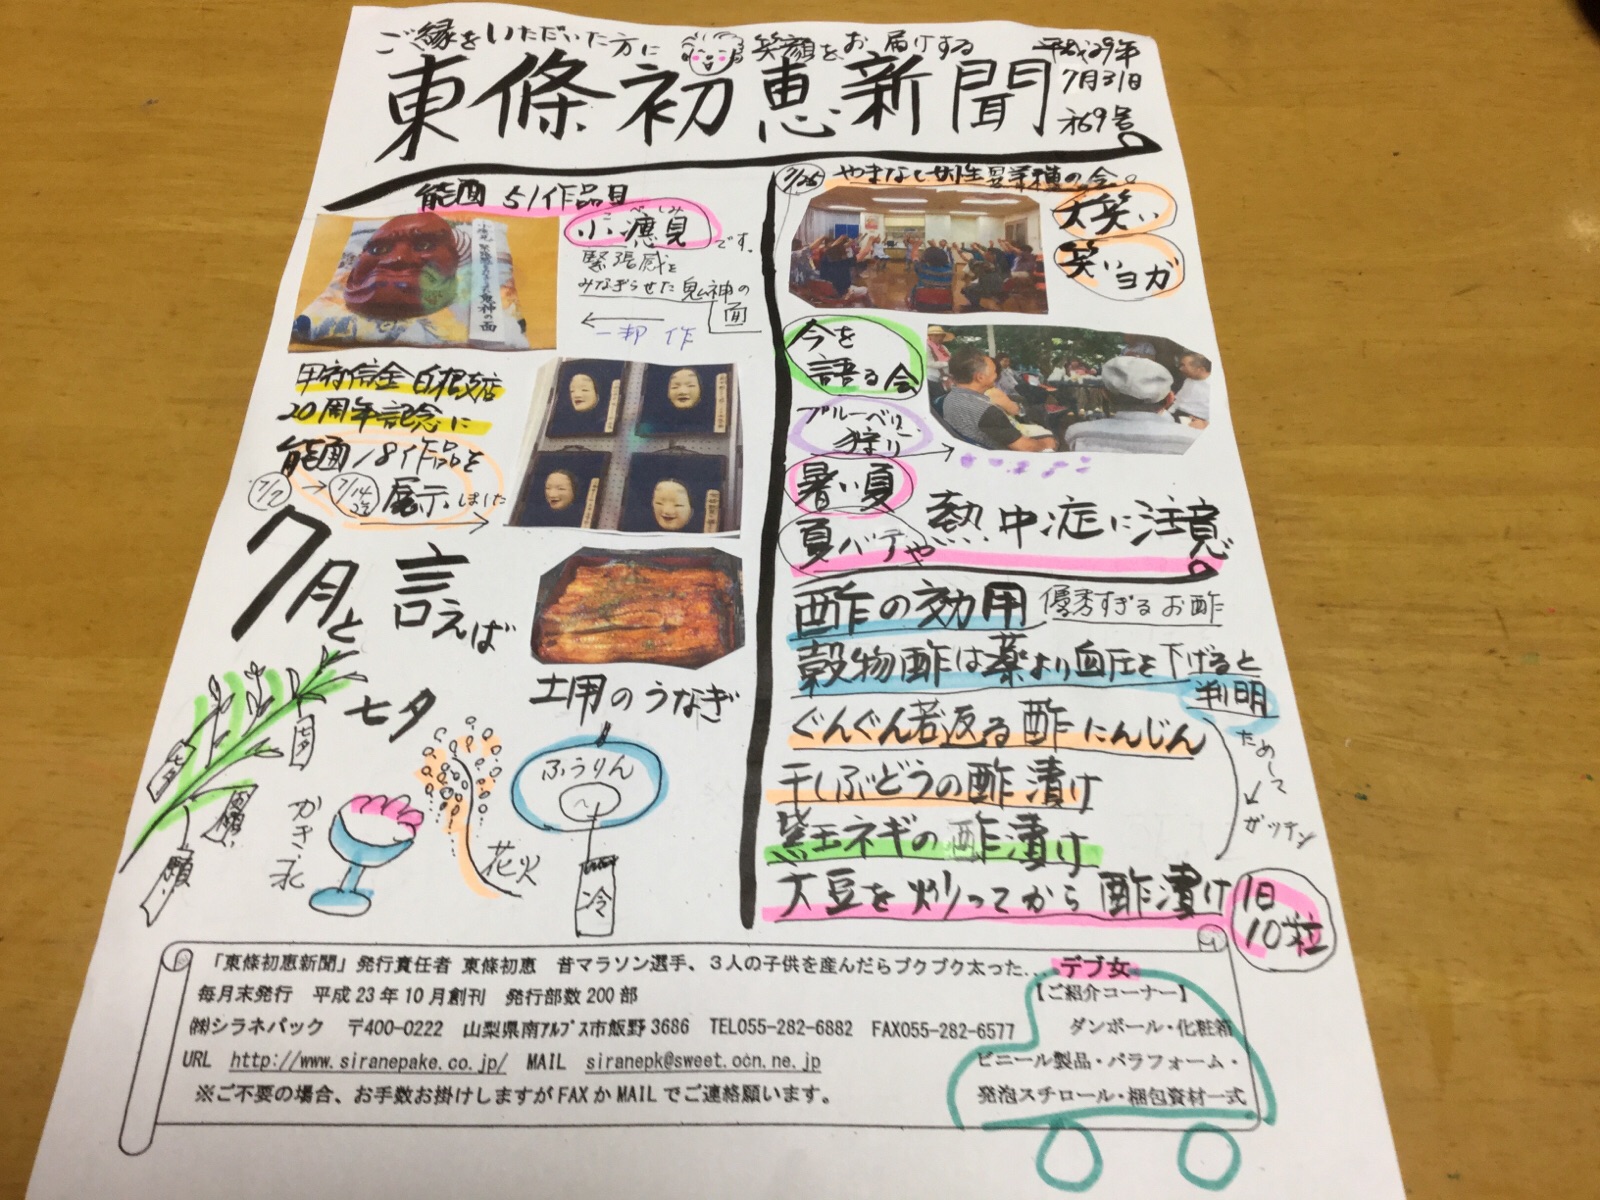 ご縁をいただいた方に 笑顔をお届けする
東條初恵新聞
平成29年
7月31日
才69号
能面 51作品目
小癋見です。
こべしみ
緊張感を
みなぎらせた鬼神の
面
一邦 作
鬼神の面
甲府信金白根支店
20周年記念に
能面18作品を
7/7→7/14 展示しました
7月と言えば
土用のうなぎ
七夕
七夕
お願い
願い
かき氷
花火
ふうりん
冷
7/25 やまなし女性異業種の会。
大笑い
笑いヨガ
今を
語る会
ブルーベリー
狩り
暑い夏
夏バテや熱中症に注意。
酢の効用 優秀すぎるお酢
穀物酢は薬より血圧を下げると
判明
ぐんぐん若返る酢にんじん
干しぶどうの酢漬け
紫玉ネギの酢漬け
大豆を炒ってから酢漬け
1日
10粒
ためして
ガッテン
「東條初恵新聞」発行責任者 東條初恵 昔マラソン選手、3人の子供を産んだらプクプク太った… デブ女
毎月末発行 平成23年10月創刊 発行部数200部
㈱シラネパック 〒400-0222 山梨県南アルプス市飯野3686 TEL055-282-6882 FAX055-282-6577
URL http://www.siranepake.co.jp/ MAIL siranepk@sweet.ocn.ne.jp
※ご不要の場合、お手数お掛けしますがFAXかMAILでご連絡願います。
【ご紹介コーナー】
ダンボール・化粧箱
ビニール製品・パラフォーム・
発泡スチロール・梱包資材一式